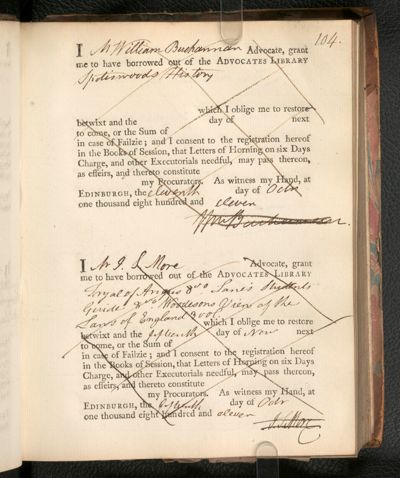 104.
I Mr William Buchannan Advocate, grant
me to have borrowed out of the ADVOCATES LIBRARY
Spotiswoods History
which I oblige me to restore
betwixt and the day of next
to come, or the Sum of
in case of Failzie; and I consent to the registration hereof
in the Books of Session, that Letters of Horning on six Days
Charge, and other Executorials needful, may pass thereon,
as effeirs, and thereto constitute
my Procurators. As witness my Hand, at
EDINBURGH, the eleventh day of Octr
one thousand eight hundred and eleven
Wm Buchannan.
I Mr J. S. More Advocate, grant
me to have borrowed out of the ADVOCATES LIBRARY
of Angus 8vo
Guide 8vo Woodesons View of the
Laws of England 8vo
which I oblige me to restore
betwixt and the day of Nov next
to come, or the Sum of
in case of Failzie; and I consent to the registration hereof
in the Books of Session, that Letters of Horning on six Days
Charge, and other Executorials needful, may pass thereon,
as effeirs, and thereto constitute
my Procurators. As witness my Hand, at
EDINBURGH, the day of Octr
one thousand eight hundred and eleven
J. S. More